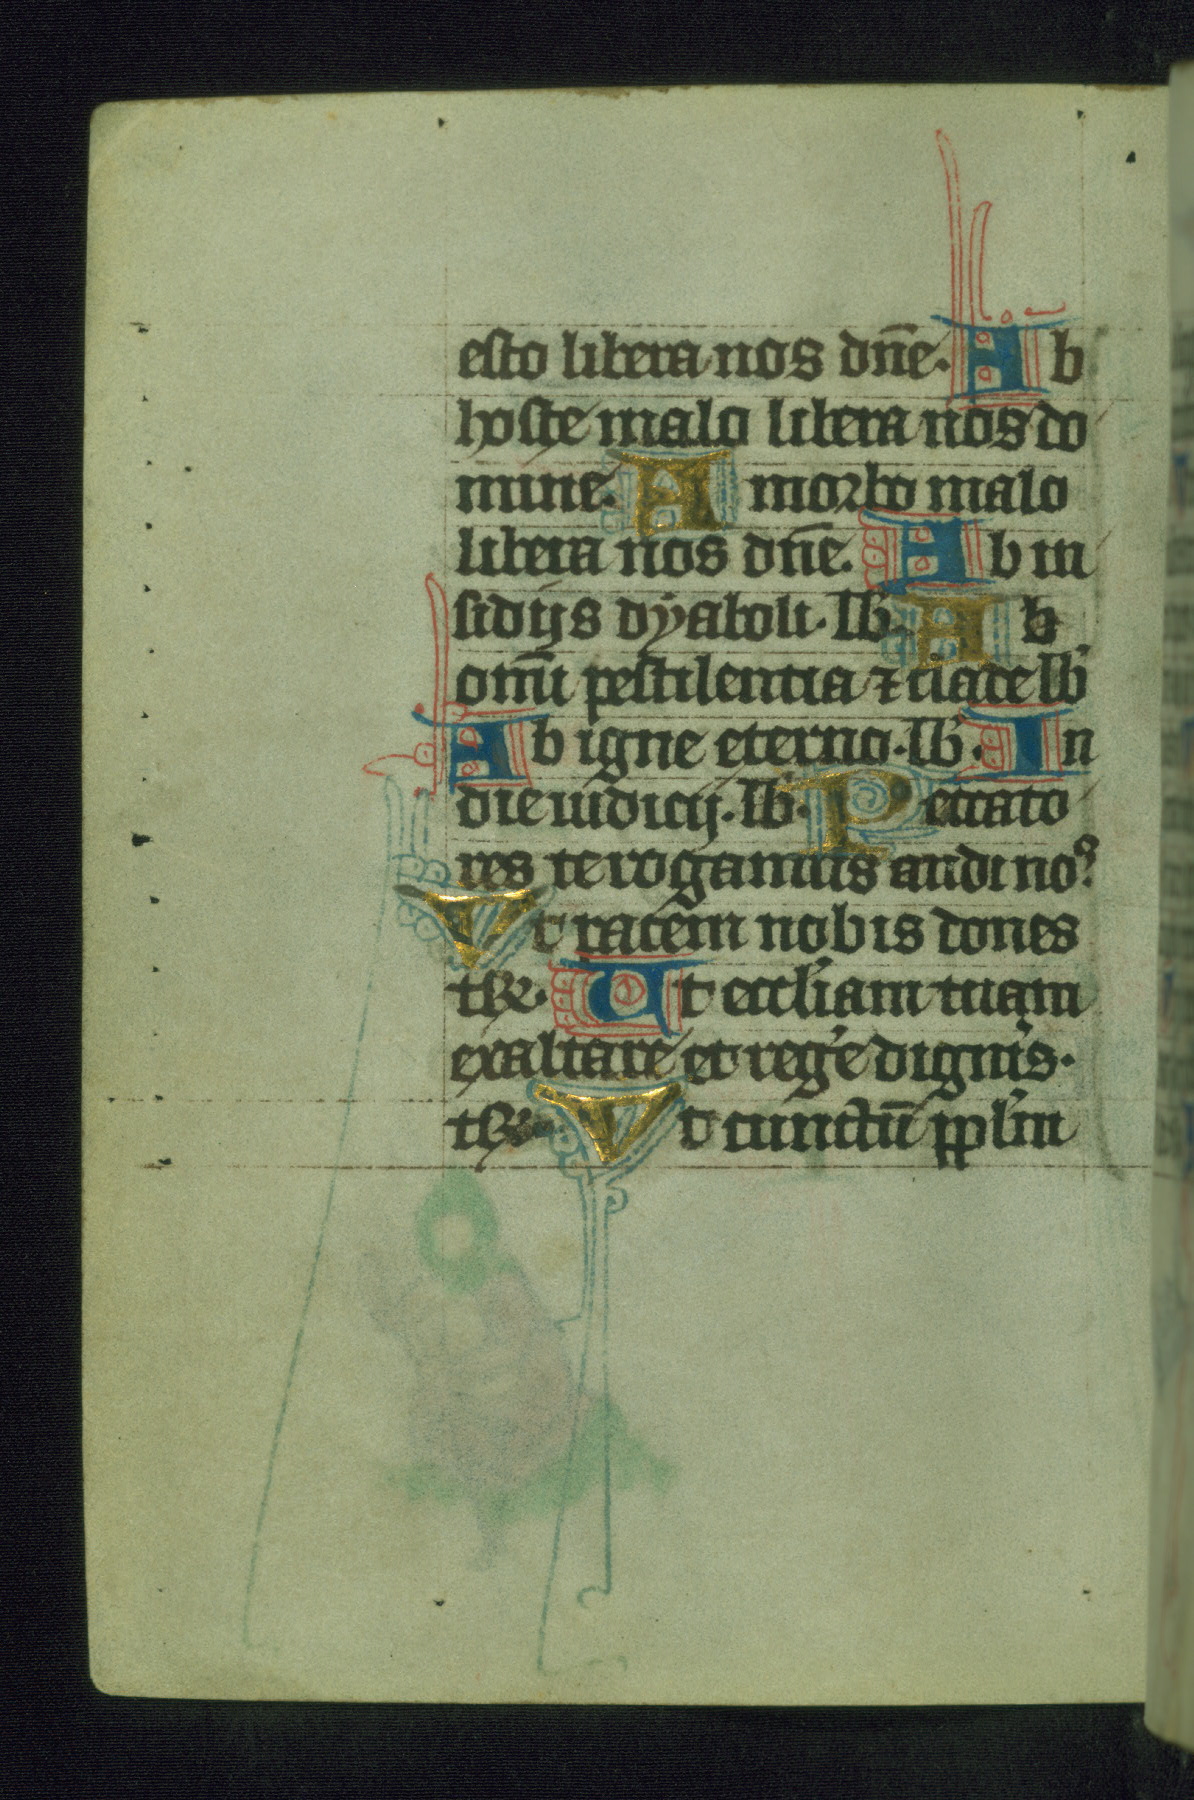 esto libera nos dn̄e. Ab
hoste malo libera nos do
mine. A morbo malo
libera nos dn̄e. Ab in
sidijs dyaboli. lb̓. Ab
omī pestilentia ⁊ clade lb̓
Ab igne eterno. lb̓. In
die iudicij. lb̓. Peccato
res te rogamus audi noꝰ
Vt pacem nobis dones
Ut eccl̓iam tuam
exaltare et reg̓e digneris.
Vt cunctū ppl̓m